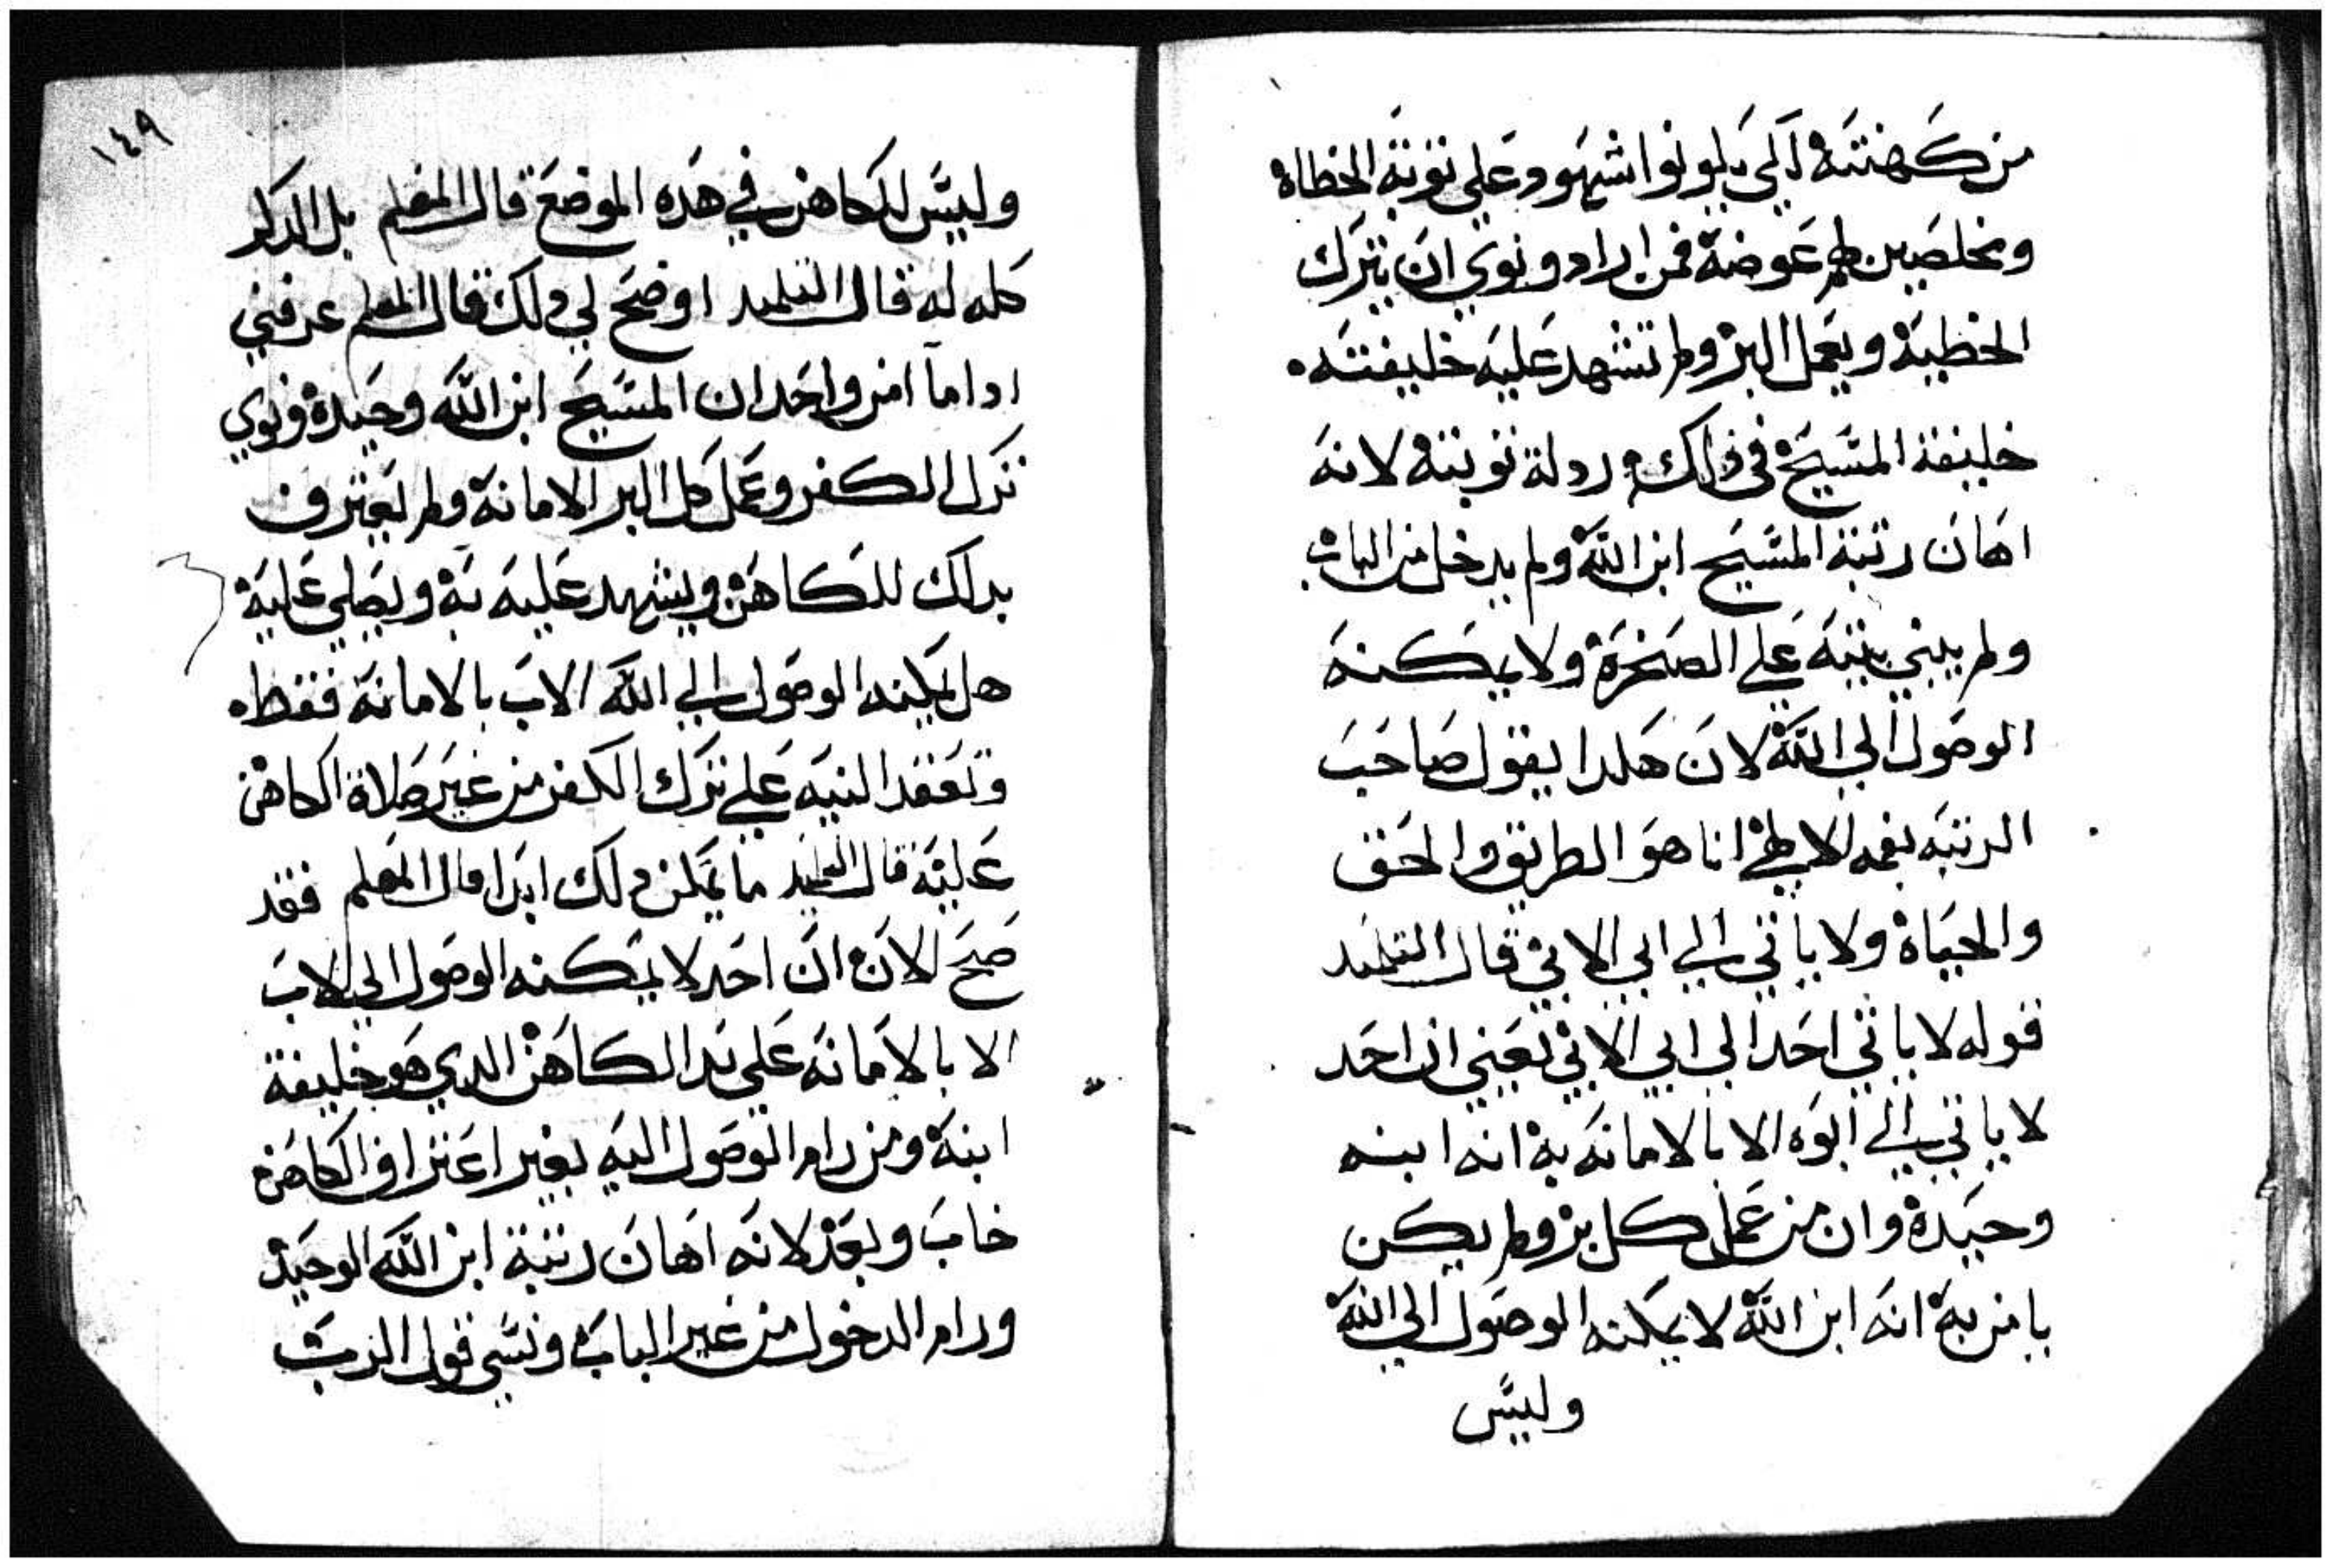 من كهنته لكي يكونوا شهود علي توبة الخطاه
ومخلصين لهم عوضة فمن اراد ونوي ان يترك
الخطية ويعمل البر ولم تشهد علية خليفته
خليفة المسيح في ذلك ردلة توبته لانه
اهان رتبة المسيح ابن الله ولم يدخل من الباب
ولم يبني بيته علي الصخرة ولا يمكنه
الوصول الي الله لان هكدا يقول صاحب
الرتبه بفمه الالهي انا هو الطريق والحق
والحياة ولا ياتي الي ابي الا بي قال التلميد
قوله لا ياتي احد الي ابي الا بي يعني ان احد
لا ياتي الي ابوه الا بالامانه به انه ابنه
وحيدة وان من عمل كل بر ولم يكن
يامن به انه ابن الله لا يمكنه الوصول الي الله
وليس
١٤٩
وليس للكاهن في هده الموضع قال المعلم بل الدكر
كله له قال التلميد اوضح لي دلك قال المعلم عرفني
ادا ما امن واحد ان المسيح ابن الله وحيدة ونوي
ترك الكفر وعمل كل البر الامانة ولم يعترف
بدلك للكاهن ويشهد عليه به ويصلي علية
هل يمكنه الوصول الي الله الاب بالامانة فقط
وتعقد النيه علي ترك الكفر من غير صلاة الكاهن
علية قال التلميد ما يمكن دلك ابدا قال المعلم فقد
صح الان ان احد لا يمكنه الوصول الي الاب
الا بالامانه علي يد الكاهن الدي هو خليفة
ابنة ومن رام الوصول اليه بغير اعتراف الكاهن
خاب وبعد لانه اهان رتبة ابن الله الوحيد
ورام الدخول من غير الباب ونسي قول الرب